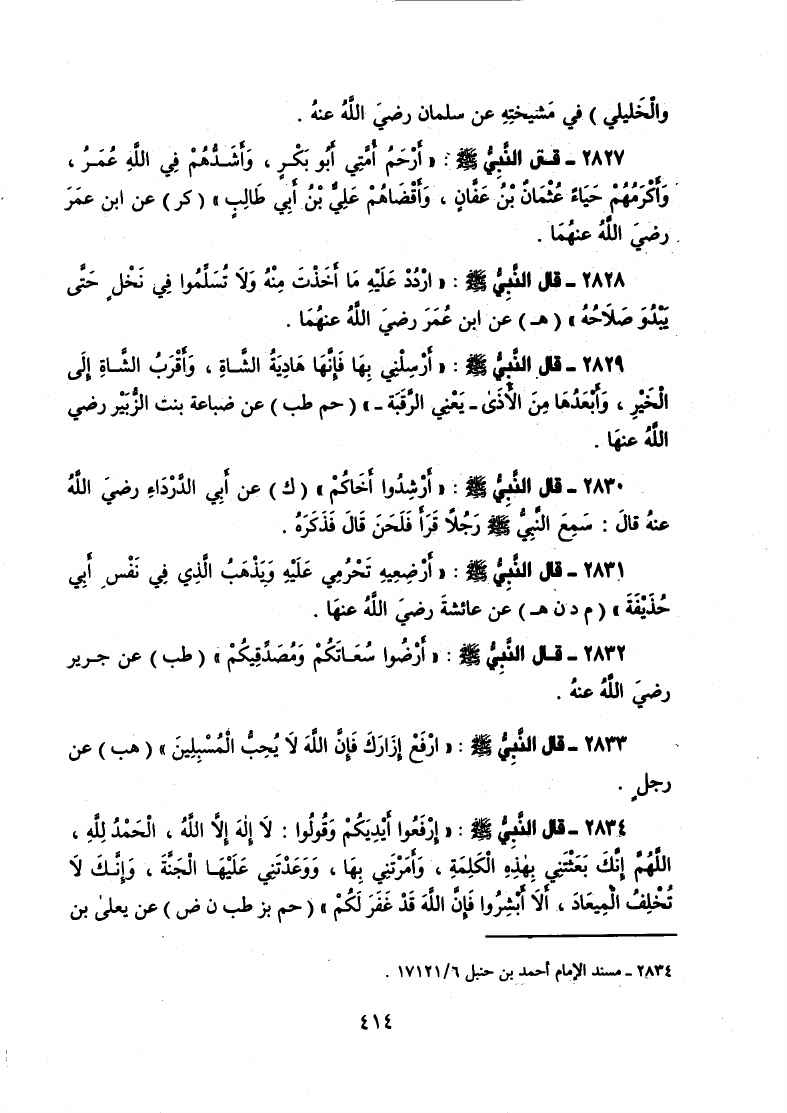 والْخَليلي ) في مَشْيختِهِ عن سلمان رضيَ اللَّهُ عنهُ .
٢٨٢٧ ـ قـتى النَّبِيُّ ﷺ : « أَرْحَمُ أُمَّتِي أَبُو بَكْـرٍ ، وَأَشَـدُّهُمْ فِي اللَّهِ عُمَـرُ ،
وَأَكْرَمُهُمْ حَيَاءً عُثْمَانُ بْنُ عَفَّانَ ، وَأَقْضَاهُمْ عَلِيُّ بْنُ أَبِي طَالِبٍ » ( كر ) عن ابن عمَرَ
رضيَ اللَّهُ عنهُمَا .
٢٨٢٨ ـ قال النَّبِيُّ ﷺ : « ارْدُدْ عَلَيْهِ مَا أَخَذْتَ مِنْهُ وَلَا تُسَلِّمُوا فِي نَخْلٍ حَتَّى
يَبْدُوَ صَلَاحُهُ » ( هـ ) عن ابن عُمَرَ رضيَ اللَّهُ عنهُمَا .
٢٨٢٩ ـ قال النَّبِيُّ ﷺ : « أَرْسِلْنِي بِهَا فَإِنَّهَا هَادِيَةُ الشَّـاةِ ، وَأَقْرَبُ الشَّـاةِ إِلَى
الْخَيْرِ ، وَأَبْعَدُهَا مِنَ الْأَذَىٰ ـ يَعْنِي الرَّقَبَةَ ـ » ( حم طب ) عن ضباعة بنت الزُّبَيْر رضي
اللَّهُ عنهَا .
٢٨٣٠ ـ قال النَّبِيُّ ﷺ : « أَرْشِدُوا أَخَاكُمْ » ( ك ) عن أَبي الدَّرْدَاءِ رضيَ اللَّهُ
عنهُ قالَ : سَمِعَ النَّبِيُّ ﷺ رَجُلًا قَرَأَ فَلَحَنَ قَالَ فَذَكَرَهُ .
٢٨٣١ ـ قال النَّبِيُّ ﷺ : « أَرْضِعِيهِ تَحْرُمِي عَلَيْهِ وَيَذْهَبُ الَّذِي فِي نَفْسِ أَبِي
حُذَيْفَةَ » ( م د ن هـ ) عن عائشةَ رضيَ اللَّهُ عنهَا .
٢٨٣٢ ـ قـال النَّبِيُّ ﷺ : « أَرْضُوا سُعَـاتَكُمْ وَمُصَدِّقِيكُمْ » ( طب ) عن جـرير
رضيَ اللَّهُ عنهُ .
٢٨٣٣ ـ قال النَّبِيُّ ﷺ : « ارْفَعْ إِزَارَكَ فَإِنَّ اللَّهَ لَا يُحِبُّ الْمُسْبِلِينَ » ( هب ) عن
رجلٍ .
٢٨٣٤ ـ قال النَّبِيُّ ﷺ : « إِرْفَعُوا أَيْدِيَكُمْ وَقُولُوا : لَا إِلٰهَ إِلَّا اللَّهُ ، الْحَمْدُ لِلَّهِ ،
اللَّهُمَّ إِنَّكَ بَعَثْتَنِي بِهٰذِهِ الْكَلِمَةِ ، وَأَمَرْتَنِي بِهَا ، وَوَعَدْتَنِي عَلَيْهَـا الْجَنَّةَ ، وَإِنَّـكَ لَا
تُخْلِفُ الْمِيعَادَ ، أَلَا أَبْشِرُوا فَإِنَّ اللَّهَ قَدْ غَفَرَ لَكُمْ » ( حم بز طب ن ض ) عن يعلىٰ بن
٢٨٣٤ ـ مسند الإمام أحمد بن حنبل ١٧١٢١/٦ .
٤١٤